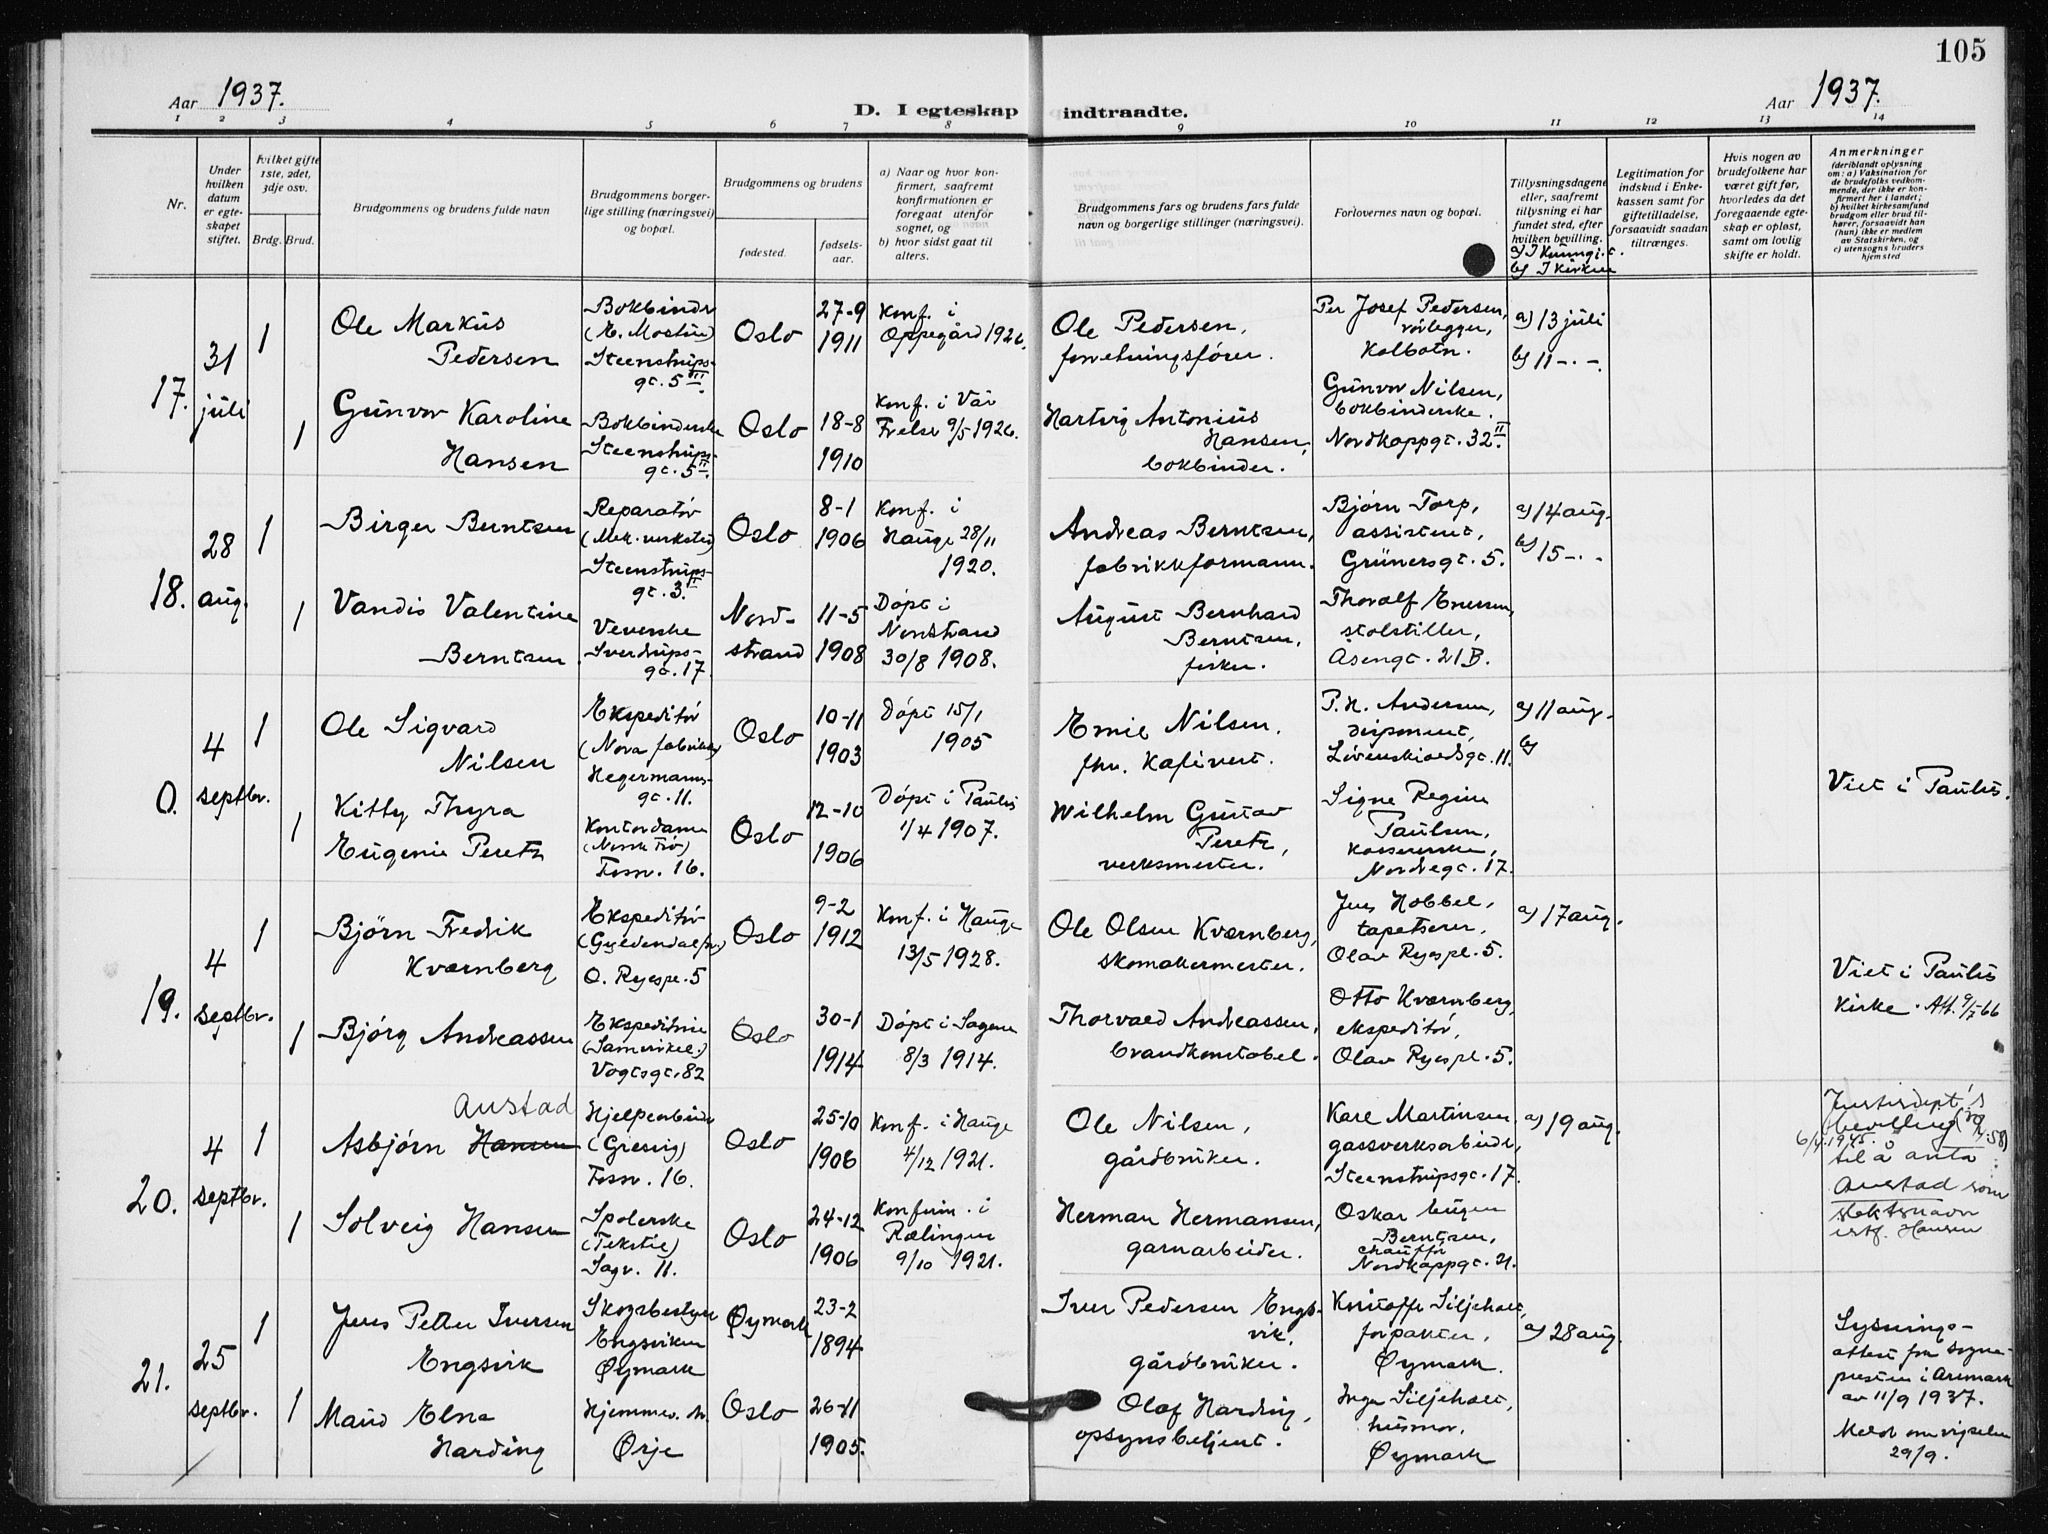 105
Aar 1937.
D. I egteskap indtraadte.
Aar 1937.
1 2 3 4 5 6 7 8 9 10 11 12 13 14
Nr.
Under
hvilken
datum
er egte-
skapet
stiftet.
hvilket gifte
1ste, 2det,
3dje osv.
Brdg. Brud.
Brudgommens og brudens fulde navn
Brudgommens borger-
lige stilling (næringsvei)
og bopæl.
Brudgommens og brudens
fødested.
fødsels-
aar.
a) Naar og hvor kon-
firmert, saafremt
konfirmationen er
foregaat utenfor
sognet, og
b) hvor sidst gaat til
alters.
Brudgommens fars og brudens fars fulde
navn og borgerlige stillinger (næringsvei).
Forlovernes navn og bopæl.
Tillysningsdagene
eller, saafremt
tillysning ei har
fundet sted, efter
hvilken bevilling.
b) I kirken
Legitimation for
indskud i Enke-
kassen samt for
giftetilladelse,
forsaavidt saadan
tiltrænges.
Hvis nogen av
brudefolkene har
været gift før,
hvorledes da det
foregaaende egte-
skap er opløst,
samt om lovlig
skifte er holdt.
Anmerkninger
(deriblandt oplysning
om: a) Vaksination for
de brudefolks vedkom-
mende, der ikke er kon-
firmert her i landet;
b) hvilket kirkesamfund
brudgom eller brud til-
hører, forsaavidt han
(hun) ikke er medlem
av Statskirken, og
c) utensogns bruders
hjemsted
17.
31
juli
1
Ole Markus
Pedersen
Bokbinder
Steenstrups-
gt. 5 II
Oslo
27-9
1911
Konf. i
Oppegård 1926.
Ole Pedersen,
forretningsfører.
Per Josef Pedersen,
rørlegger,
Kolbotn.
a) 13 juli
b) 11 -.-
1
Gunvor Karoline
Hansen
Bokbinderske
Steenstrups-
gt. 5 II
Oslo
18-8
1910
Konf. i Vår
Frelser 9/5 1926.
Hartvig Antonius
Hansen,
bokbinder.
Gunvor Nilsen,
bokbinderske.
Nordkappgt. 32 II
18.
28
aug.
1
Birger Berntsen
Reparatør
(Mek. verksted)
Steenstrups-
gt. 3. II
Oslo
8-1
1906
Konf. i
Hauge 28/11
1920.
Andreas Berntsen,
fabrikkformann.
Bjørn Torp,
assistent,
Grünersgt. 5.
a) 14 aug.
b) 15 -.-
1
Vandis Valentine
Berntsen
Veverske
Sverdrups-
gt. 17.
Nord-
strand
11-5
1908
Døpt i
Nordstrand
30/8 1908.
August Bernhard
Berntsen,
fisker.
Thoralf Enersen,
stolstiller,
Åsengt. 21B.
0.
4
septbr.
1
Ole Sigvard
Nilsen
Ekspeditør
(Nora fabrikker)
Hegermanns-
gt. 11.
Oslo
10-11
1903
Døpt 15/1
1905
Emil Nilsen,
fhv. kafévert.
P. H. Andersen,
disponent,
Løvenskioldsgt. 11.
a) 11 aug.
b)
Viet i Paulus.
1
Kitty Thyra
Eugenie Peretz
Kontordame
Fosv. 16.
Oslo
12-10
1906
Døpt i Paulus
1/4 1907.
Wilhelm Gustav
Peretz,
verksmester.
Signe Regine
Paulsen,
kassererske,
Nordregt. 17.
19.
4
septbr.
1
Bjørn Fredrik
Kvernberg
Ekspeditør
O. Ryespl. 5
Oslo
9-2
1912
Konf. i Hauge
13/5 1928.
Ole Olsen Kvernberg,
skomakermester.
Jens Hobbel,
tapetserer,
Olav Ryespl. 5.
a) 17 aug.
Viet i Paulus
Kirke. Att. 9/7 66
1
Bjørg Andreassen
Ekspeditrise
Vogtsgt. 82
Oslo
30-1
1914
Døpt i Sagene
8/3 1914.
Thorvald Andreassen,
brandkonstabel.
Otto Kvernberg,
ekspeditør,
Olav Ryespl. 5.
20.
4
septbr.
1
Anstad
Asbjørn Hansen
Hjelpearbeider
(Gresvig)
Fosv. 16.
Oslo
25-10
1906
Konf. i Hauge
4/12 1921.
Ole Nilsen,
gårdbruker.
Kare Martinsen,
gassverksarbeider,
Steenstrupsgt. 17.
a) 19 aug.
Justisdept's
bevilling
til å anta
Anstad som
slektsnavn
istf. Hansen
1
Solveig Hansen
Spolerske
(Tekstil)
Sagv. 11.
Oslo
24-12
1906
Konfirm. i
Rælingen
9/10 1921.
Herman Hermansen,
garnarbeider.
Oskar Eugen
Berntsen,
chauffør
Nordkappgt. 21.
21.
25
septbr.
1
Jens Petter Iversen
Engsvik
Skogsbestyrer
Engsviken
Øymark
Øymark
23-2
1894
Iver Pedersen Engs-
vik,
gårdbruker.
Kristoffer Siljeholt,
forpakter,
Øymark.
a) 28 aug.
Lysnings-
attest fra sogne-
presten i Aremark
av 11/9 1937.
Meld. om vigselen
29/9.
1
Maud Elna
Harding
Hjemmev.
Ørje
Oslo
26-11
1905.
Olaf Harding,
opsynsbetjent.
Inga Siljeholt,
husmor,
Øymark